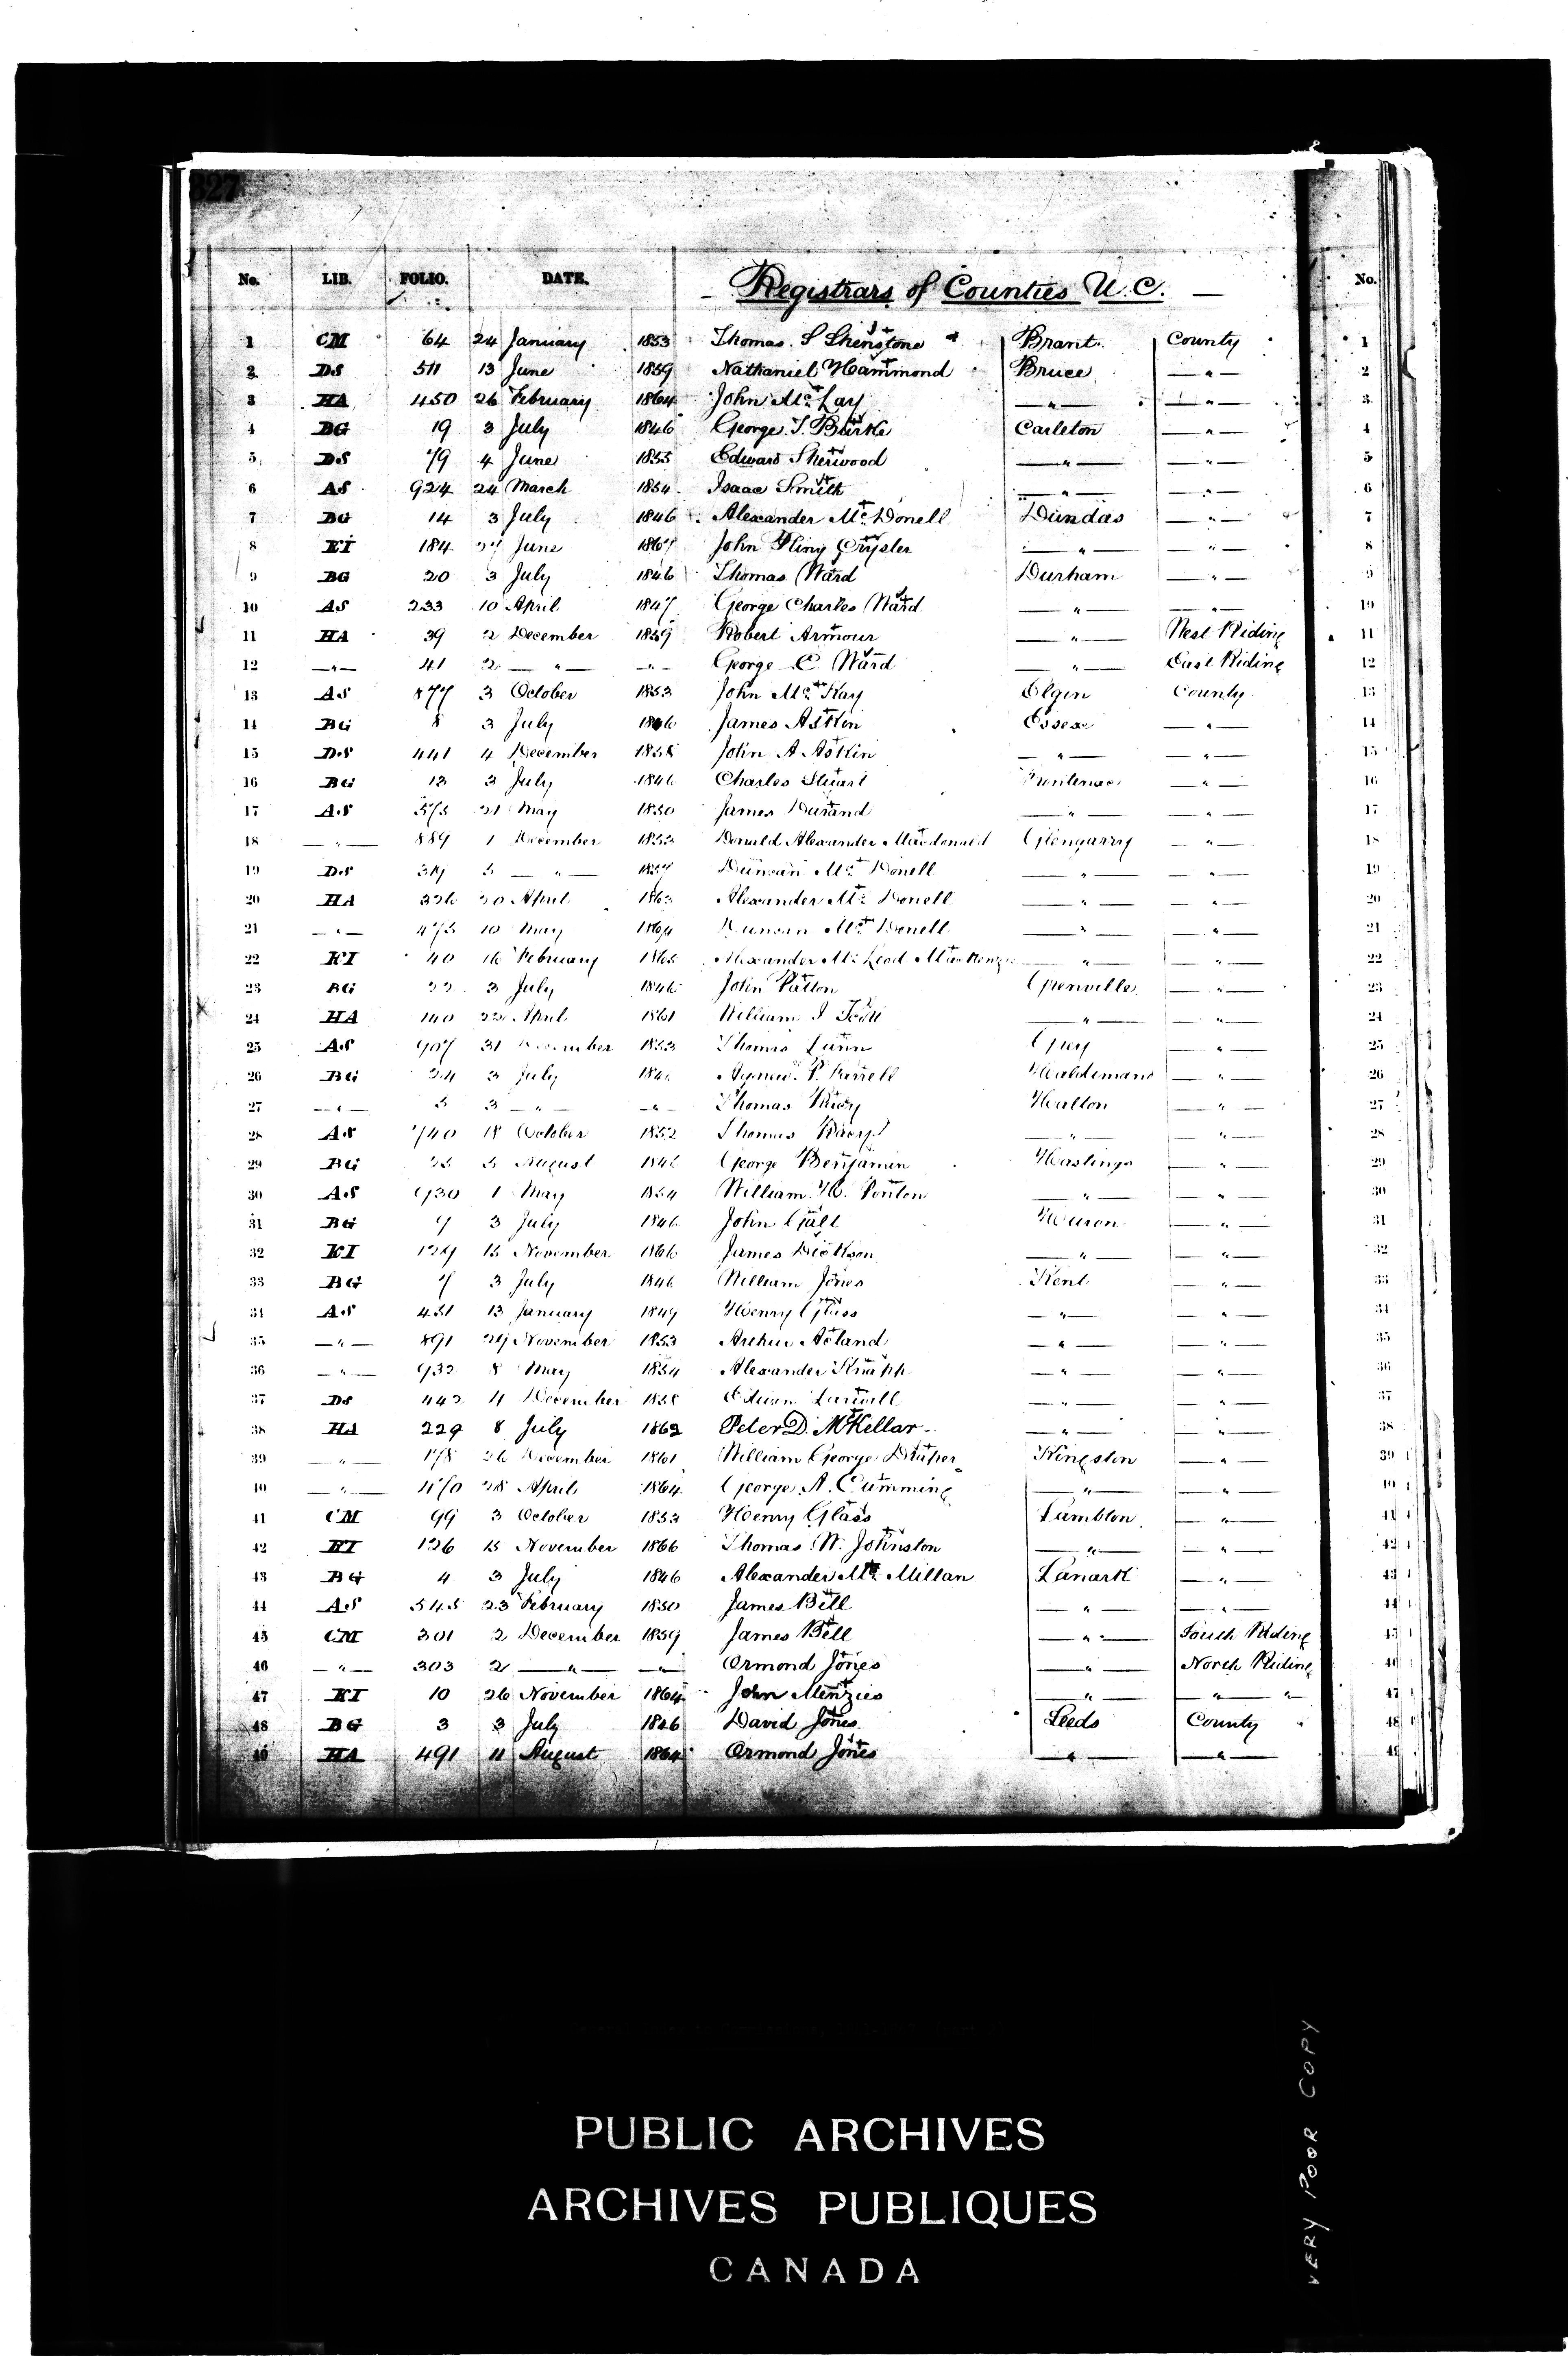 327
No. LIB. FOLIO. DATE. Registrars of Counties U.C. No.
1 CM 64 24 January 1853 Thomas S Shenstone Brant County 1
2 DS 511 13 June 1859 Nathaniel Hammond Bruce —"— 2
3 HA 450 26 February 1864 John Mc Lay —"— —"— 3
4 BG 19 3 July 1846 George T. Burke Carleton —"— 4
5 DS 79 4 June 1855 Edward Sherwood —"— —"— 5
6 AS 924 24 March 1854 Isaac Smith —"— —"— 6
7 BG 14 3 July 1846 Alexander Mc Donell Dundas —"— 7
8 EI 184 27 June 1867 John Pliny Crysler —"— —"— 8
9 BG 20 3 July 1846 Thomas Ward Durham —"— 9
10 AS 233 10 April 1847 George Charles Ward —"— —"— 10
11 HA 39 2 December 1859 Robert Armour —"— West Riding 11
12 —"— 41 2 —"— —"— George C. Ward —"— East Riding 12
13 AS 877 3 October 1853 John Mc Kay Elgin County 13
14 BG 8 3 July 1846 James Askin Essex —"— 14
15 DS 441 4 December 1858 John A Askin —"— —"— 15
16 BG 13 3 July 1846 Charles Stuart Frontenac —"— 16
17 AS 373 21 May 1850 James Durand —"— —"— 17
18 —"— 889 1 December 1853 Donald Alexander Macdonald Glengarry —"— 18
19 DS 319 5 —"— 1857 Duncan Mc Donell —"— —"— 19
20 HA 326 20 April 1863 Alexander Mc Donell —"— —"— 20
21 —"— 475 10 May 1864 Duncan Mc Donell —"— —"— 21
22 EI 40 16 February 1865 Alexander Mc Leod Mackenzie —"— —"— 22
23 BG 22 3 July 1846 John Patton Grenville —"— 23
24 HA 140 April 1861 William J Scott —"— —"— 24
25 AS 907 31 December 1853 Thomas Lunn Grey —"— 25
26 BG 24 3 July 1846 Agnew P. Farrell Haldimand —"— 26
27 —"— 5 3 —"— —"— Thomas Racey Halton —"— 27
28 AS 740 18 October 1852 Thomas Racey —"— —"— 28
29 BG 25 5 August 1846 George Benjamin Hastings —"— 29
30 AS 930 1 May 1854 William H. Ponton —"— —"— 30
31 BG 9 3 July 1846 John Galt Huron —"— 31
32 EI 129 15 November 1866 James Dickson —"— —"— 32
33 BG 7 3 July 1846 William Jones Kent —"— 33
34 AS 431 13 January 1849 Henry Glass —"— —"— 34
35 —"— 891 29 November 1853 Arthur Acland —"— —"— 35
36 —"— 932 8 May 1854 Alexander Knapp —"— —"— 36
37 DS 442 4 December 1858 Edwin Larwill —"— —"— 37
38 HA 229 8 July 1862 Peter D. McKellar —"— —"— 38
39 —"— 178 26 December 1861 William George Draper Kingston —"— 39
40 —"— 470 28 April 1864 George A. Cumming —"— —"— 40
41 CM 99 3 October 1853 Henry Glass Lambton —"— 41
42 EI 126 15 November 1866 Thomas W. Johnston —"— —"— 42
43 BG 4 3 July 1846 Alexander Mc Millan Lanark —"— 43
44 AS 545 23 February 1850 James Bell —"— —"— 44
45 CM 301 2 December 1859 James Bell —"— South Riding 45
46 —"— 303 2 —"— —"— Ormond Jones —"— North Riding 46
47 EI 10 26 November 1864 John Menzies —"— —"— —"— 47
48 BG 3 3 July 1846 David Jones Leeds County 48
49 HA 491 11 August 1864 Ormond Jones —"— —"— 49
PUBLIC ARCHIVES
ARCHIVES PUBLIQUES
CANADA
VERY POOR COPY